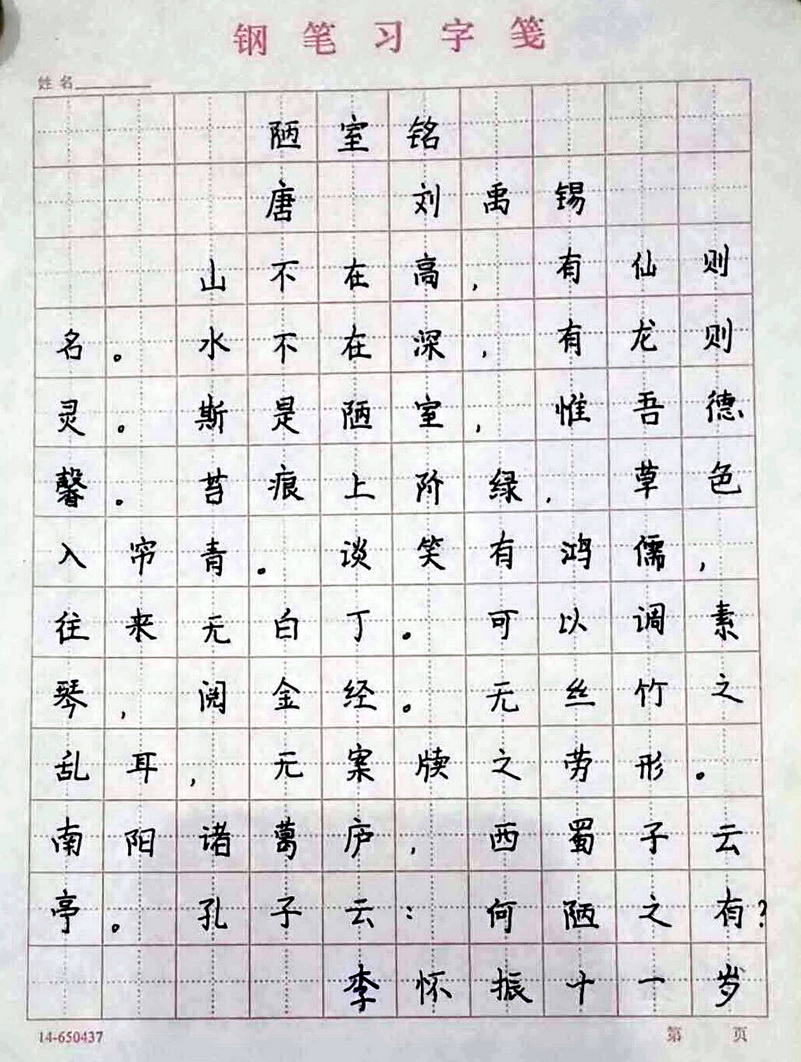 钢笔习字笺
姓名
陋室铭
唐 刘禹锡
山不在高，有仙则
名。水不在深，有龙则
灵。斯是陋室，惟吾德
馨。苔痕上阶绿，草色
入帘青。谈笑有鸿儒，
往来无白丁。可以调素
琴，阅金经。无丝竹之
乱耳，无案牍之劳形。
南阳诸葛庐，西蜀子云
亭。孔子云：何陋之有？
李怀振十一岁
14-650437 第 页